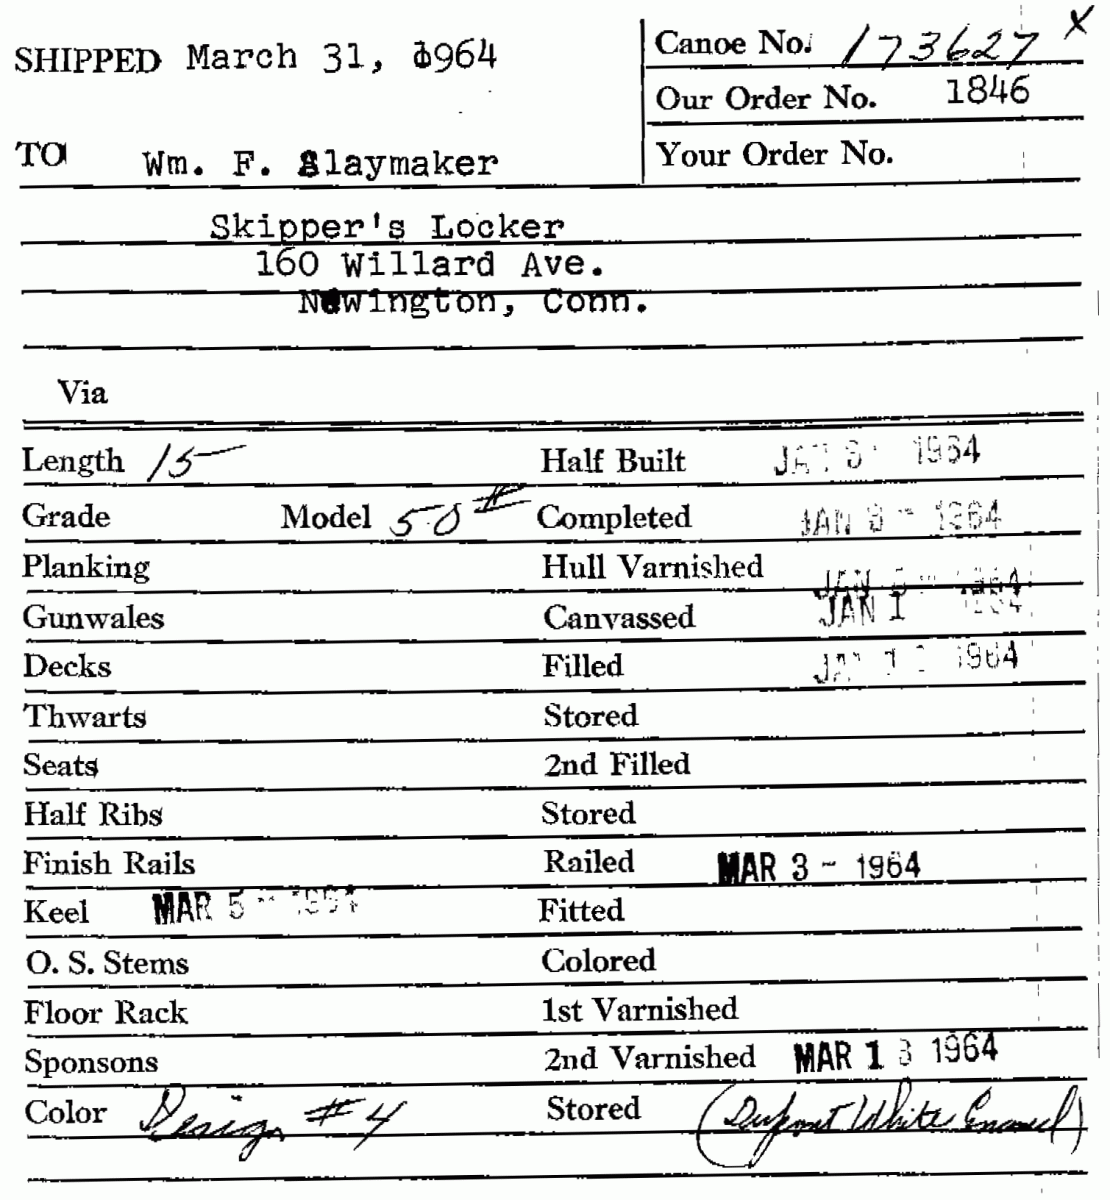 SHIPPED March 31, 1964
Canoe No. 173627 X
Our Order No. 1846
TO Wm. F. Slaymaker
Your Order No.
Skipper's Locker
160 Willard Ave.
Newington, Conn.
Via
Length 15 Half Built 1964
Grade Model 50# Completed JAN 8 - 1964
Planking Hull Varnished JAN 1964
Gunwales Canvassed JAN 1964
Decks Filled 1964
Thwarts Stored
Seats 2nd Filled
Half Ribs Stored
Finish Rails Railed MAR 3 - 1964
Keel MAR 5 - 1964 Fitted
O. S. Stems Colored
Floor Rack 1st Varnished
Sponsons 2nd Varnished MAR 13 1964
Color Design #4 Stored (Dupont White Enamel)